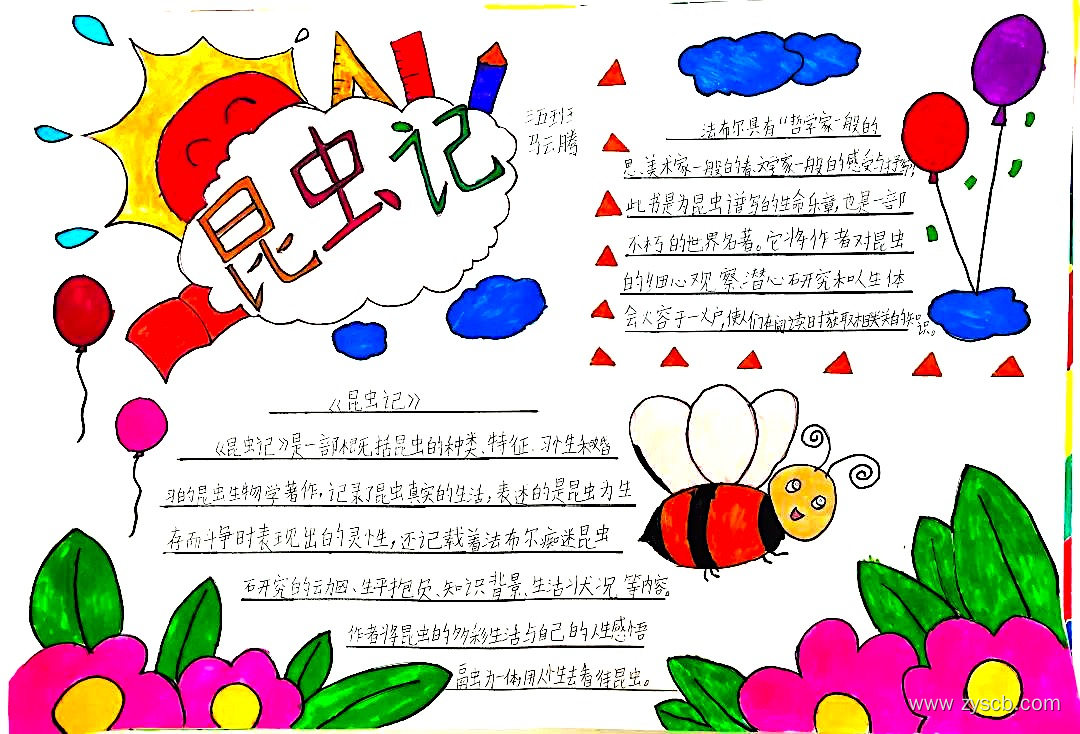 昆虫记
三五班
马云腾
法布尔具有“哲学家一般的
思、美术家一般的看、文学家一般的感受与抒写，
此书是为昆虫谱写的生命乐章，也是一部
不朽的世界名著。它将作者对昆虫
的细心观察、潜心研究和人生体
会入容于一炉，使人们在阅读时获取相关类的知识。
《昆虫记》
《昆虫记》是一部概括昆虫的种类、特征、习性和婚
习的昆虫生物学著作，记录了昆虫真实的生活，表述的是昆虫为生
存而斗争时表现出的灵性，还记载着法布尔痴迷昆虫
研究的动因、生平抱负、知识背景、生活状况等内容。
作者将昆虫的多彩生活与自己的人生感悟
融为一体，用人性去看待昆虫。
www.zyscb.com